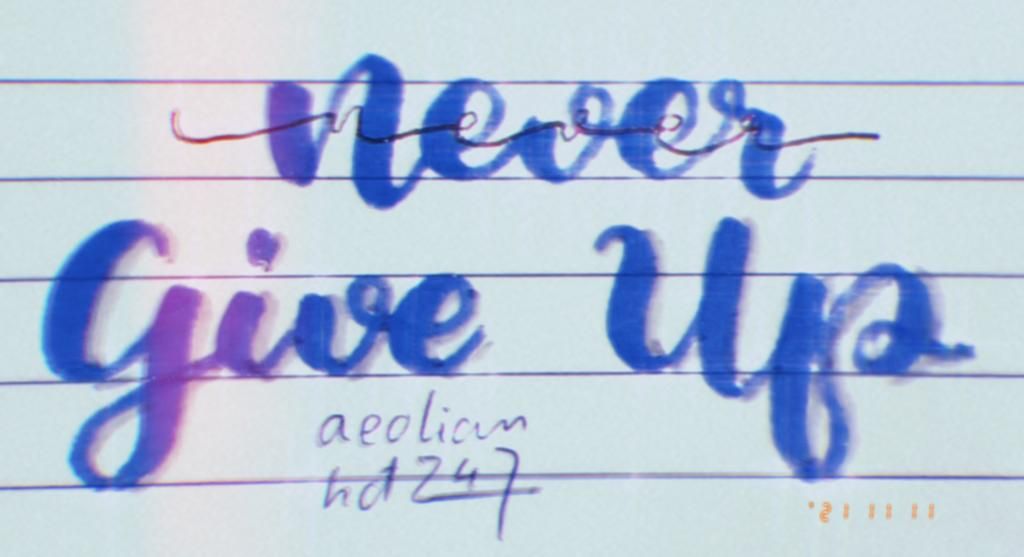 never
Give Up
aeolian
hd247
'21 11 11